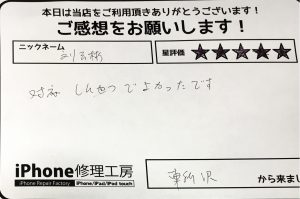 本日は当店をご利用頂きありがとうございます！
ご感想をお願いします！
ニックネーム
星評価 ★★★★★
対応 しんせつ でよかったです
iPhone修理工房
iPhone Repair Factory iPhone/iPad/iPod touch
東所沢 から来まし